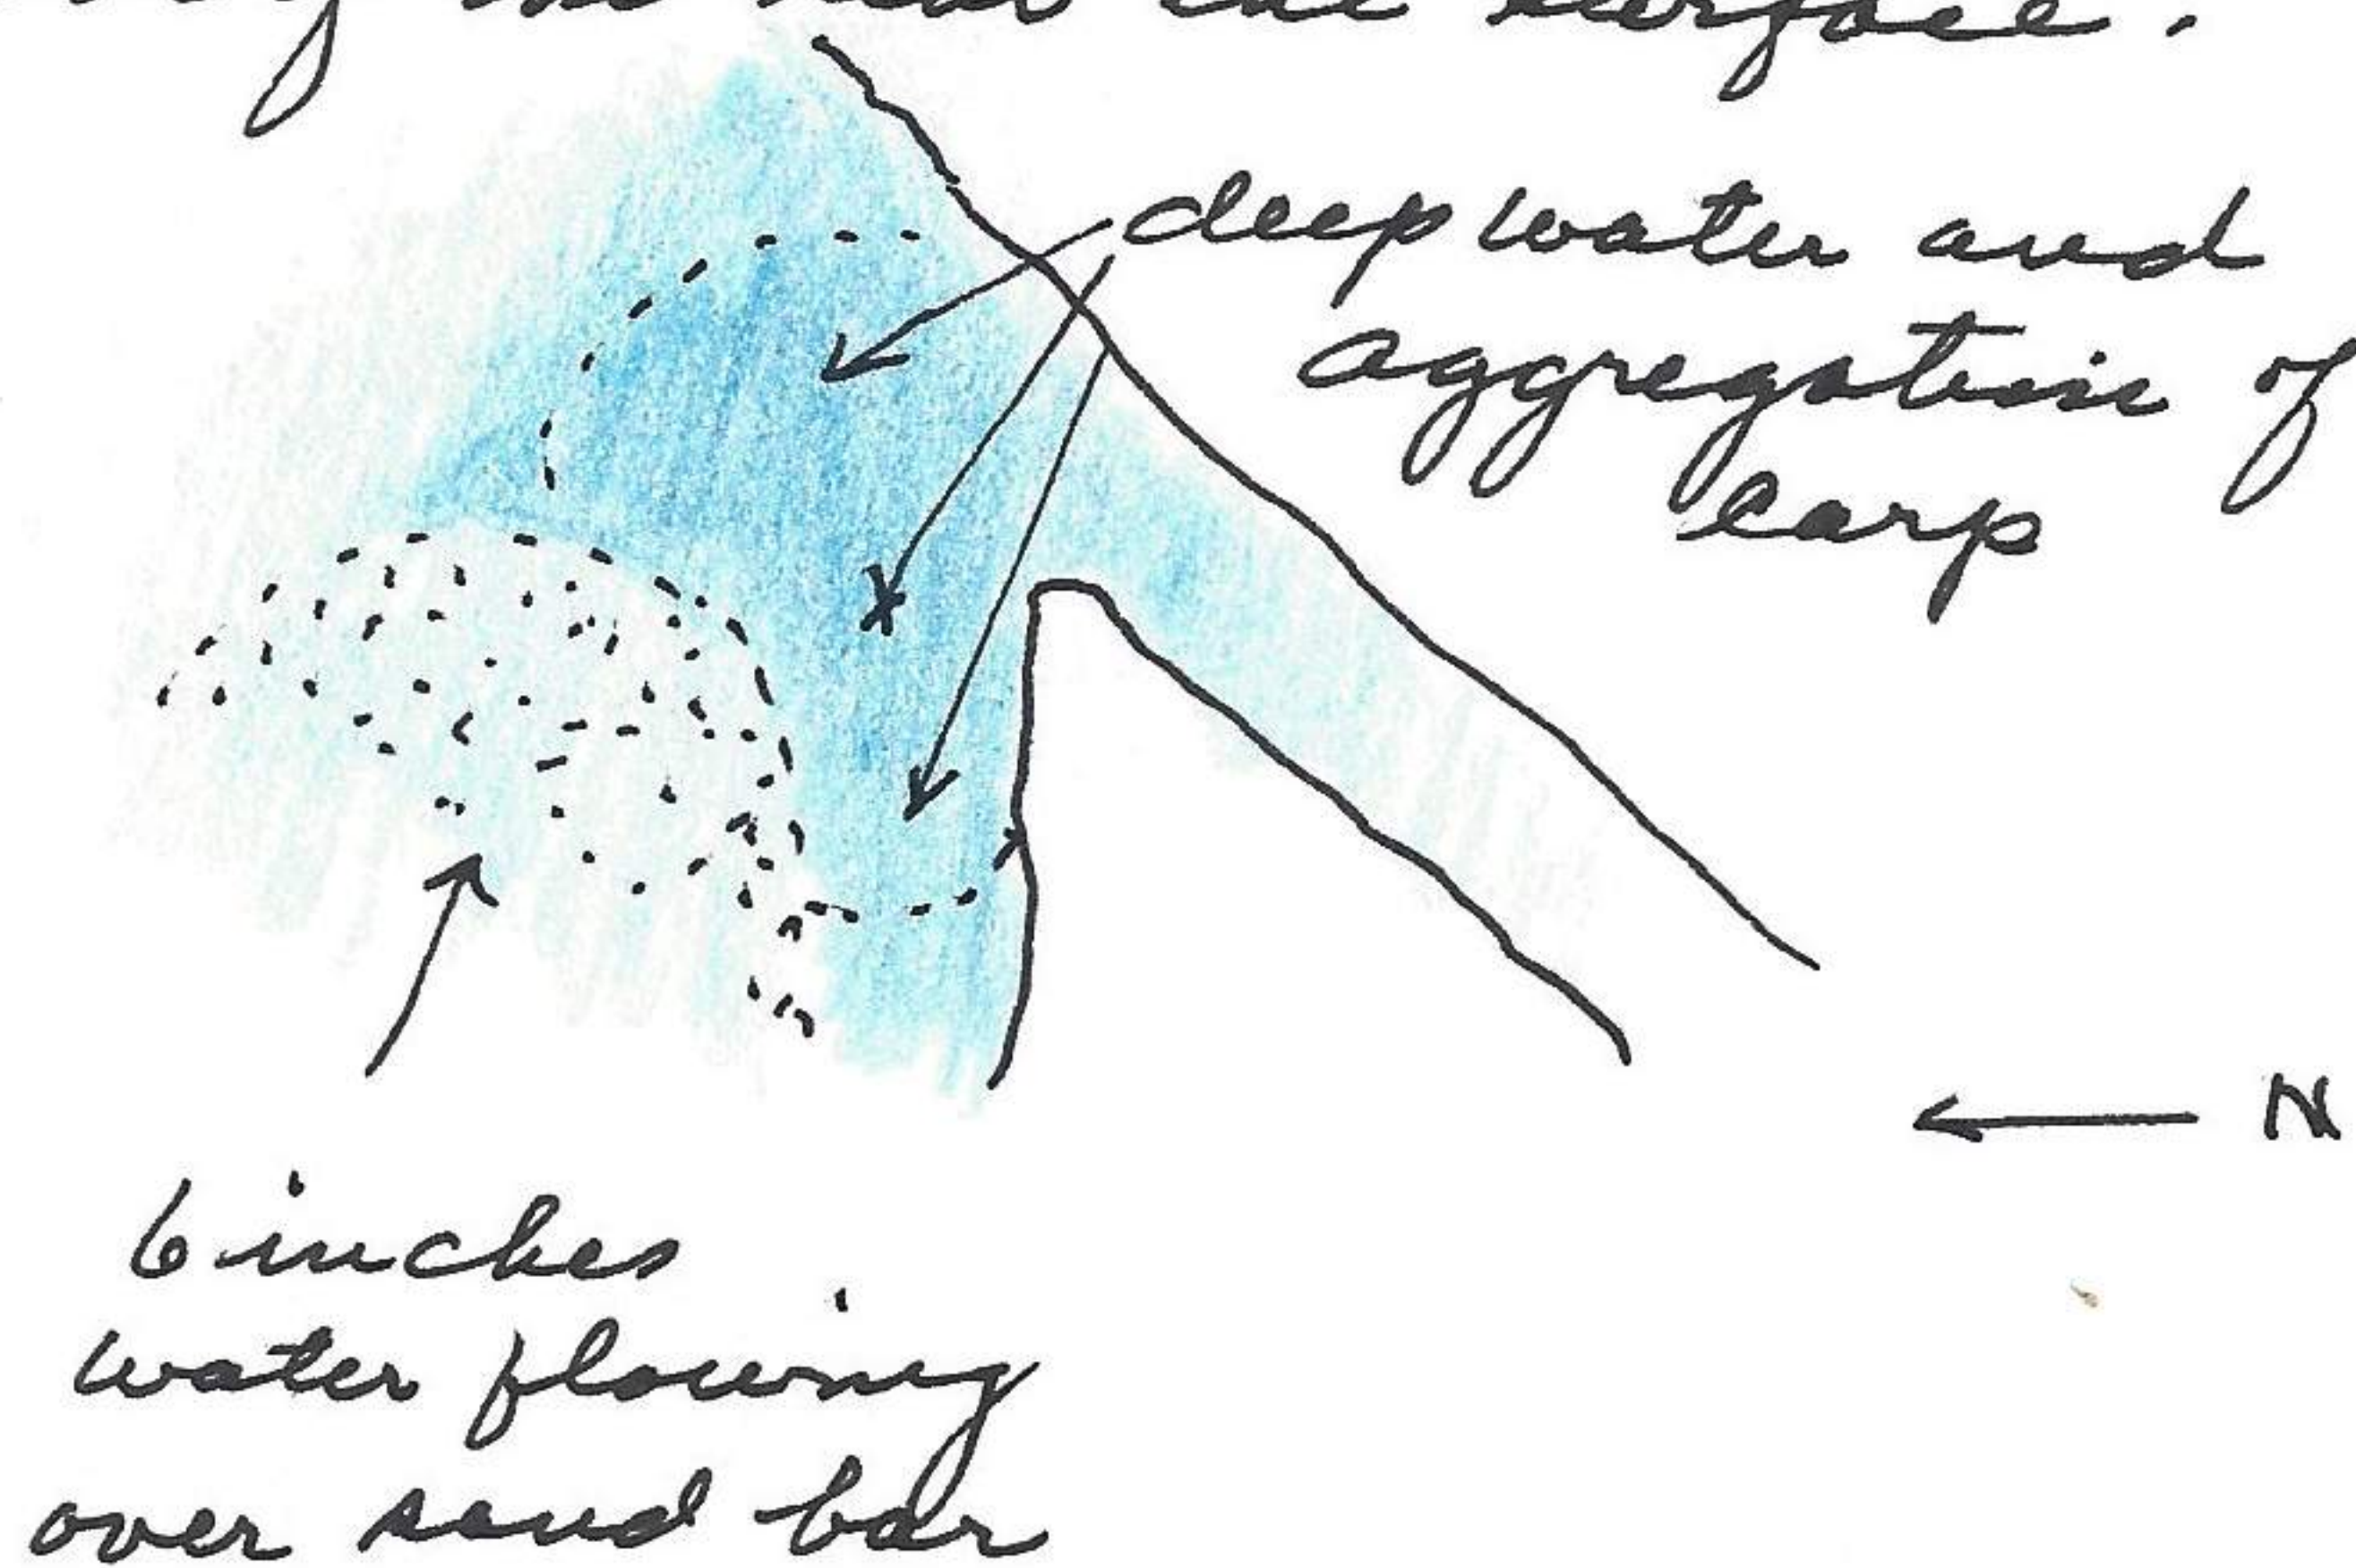 the surface.
deep water and
aggregation of
carp
N
6 inches
water flowing
over sand bar